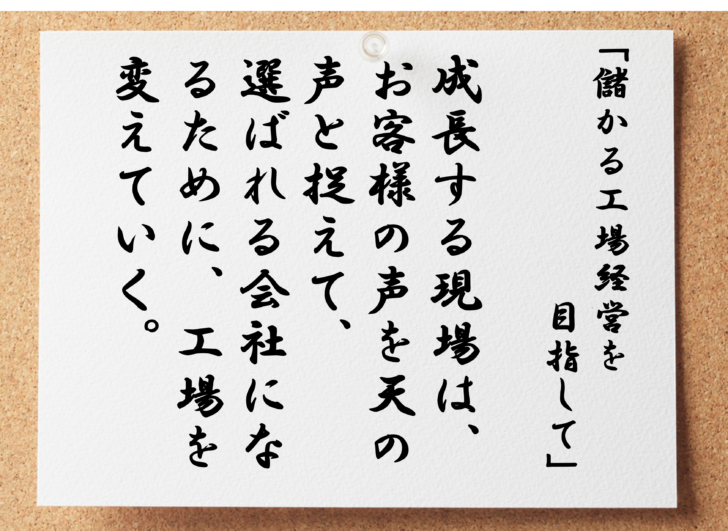 「儲かる工場経営を
目指して」
成長する現場は、
お客様の声を天の
声と捉えて、
選ばれる会社にな
るために、工場を
変えていく。